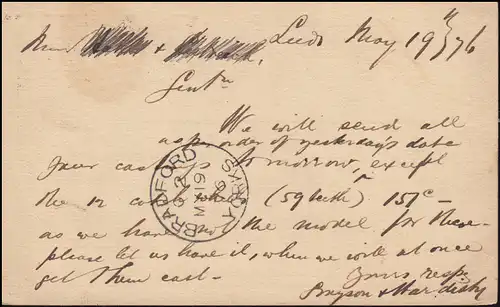 Leeds May 19th/76
Gentn
We will send all
as per order of yesterdays date
your castings tomorrow, except
the 12 cast wheels (59 teeth) 151c -
as we have not the model for these -
please let us have it, when we will at once
get them cast -
Yours respy
Bryson &
BRADFORD YORKS
MY 19
76